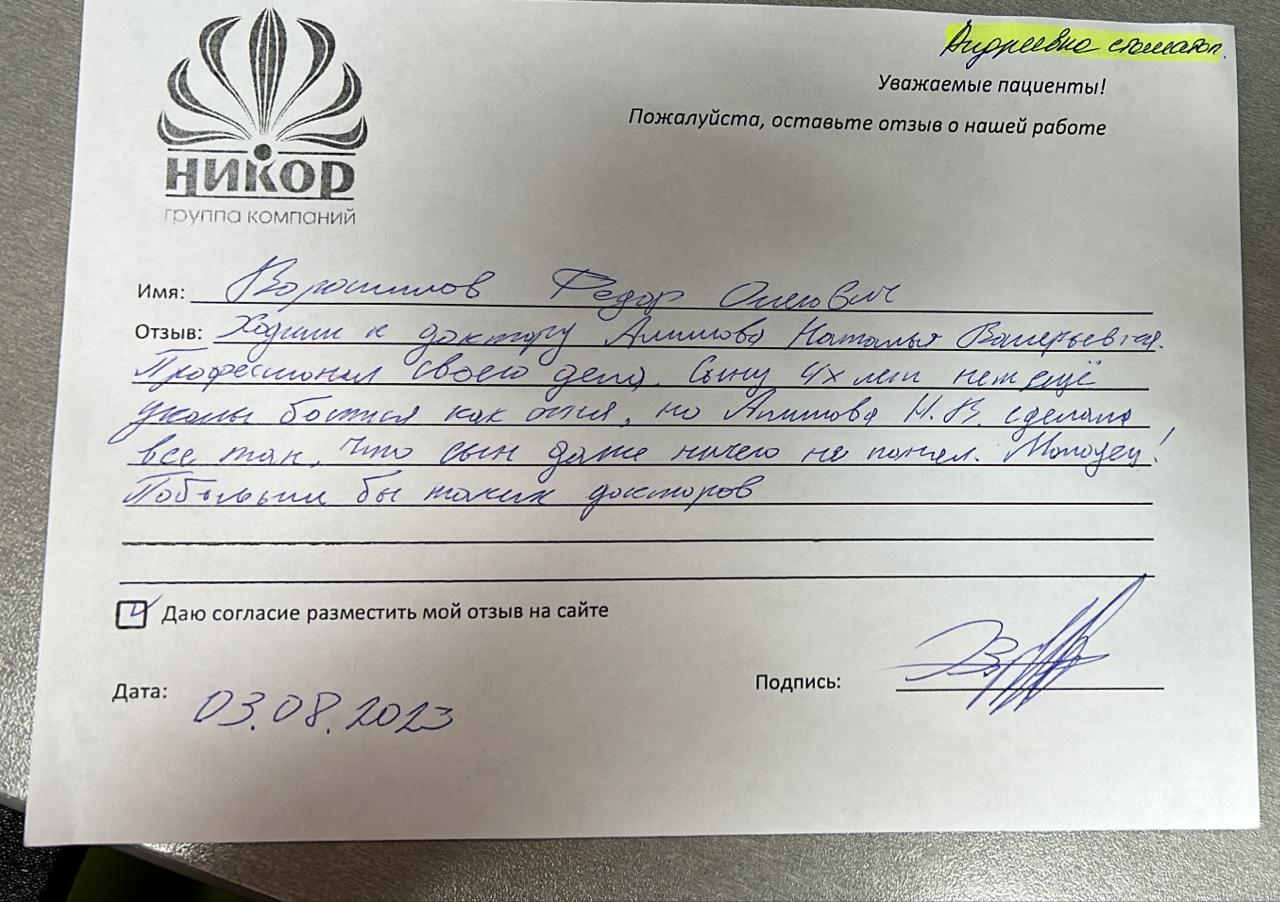 Андреевка стоматол.
НИКОР
группа компаний
Уважаемые пациенты!
Пожалуйста, оставьте отзыв о нашей работе
Имя: Ворошилов Федор Олегович
Отзыв: Ходили к доктору Алимова Наталья Валерьевна.
Профессионал своего дела. Сыну 4х лет нет ещё
уколы боится как огня, но Алимова Н.В. сделала
все так, что сын даже ничего не понял. Молодец!
Побольше бы таких докторов
Даю согласие разместить мой отзыв на сайте
Дата: 03.08.2023
Подпись: